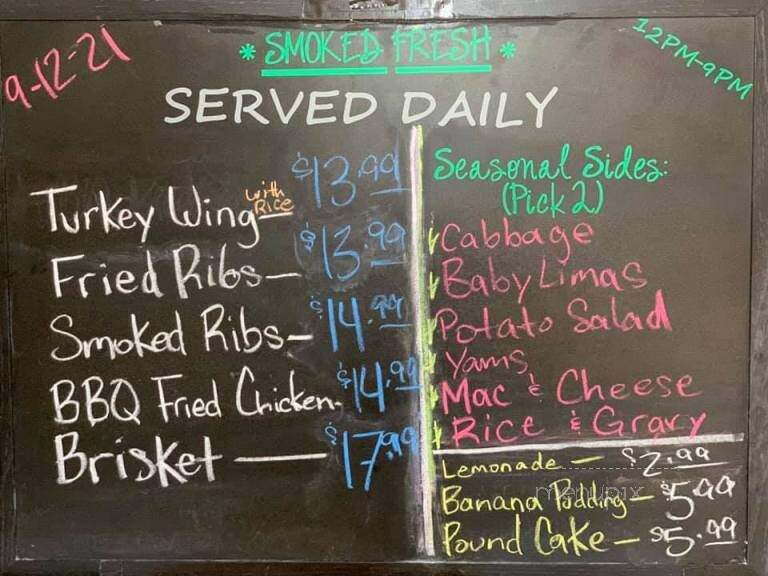 9-12-21
* SMOKED FRESH *
12PM-9PM
SERVED DAILY
Turkey Wing with Rice $13.99
Fried Ribs — $13.99
Smoked Ribs — $14.99
BBQ Fried Chicken - $14.99
Brisket — $17.99
Seasonal Sides:
(Pick 2)
Cabbage
Baby Limas
Potato Salad
Yams
Mac & Cheese
Rice & Gravy
Lemonade — $2.99
Banana Pudding — $5.99
Pound Cake — $5.99
menupix